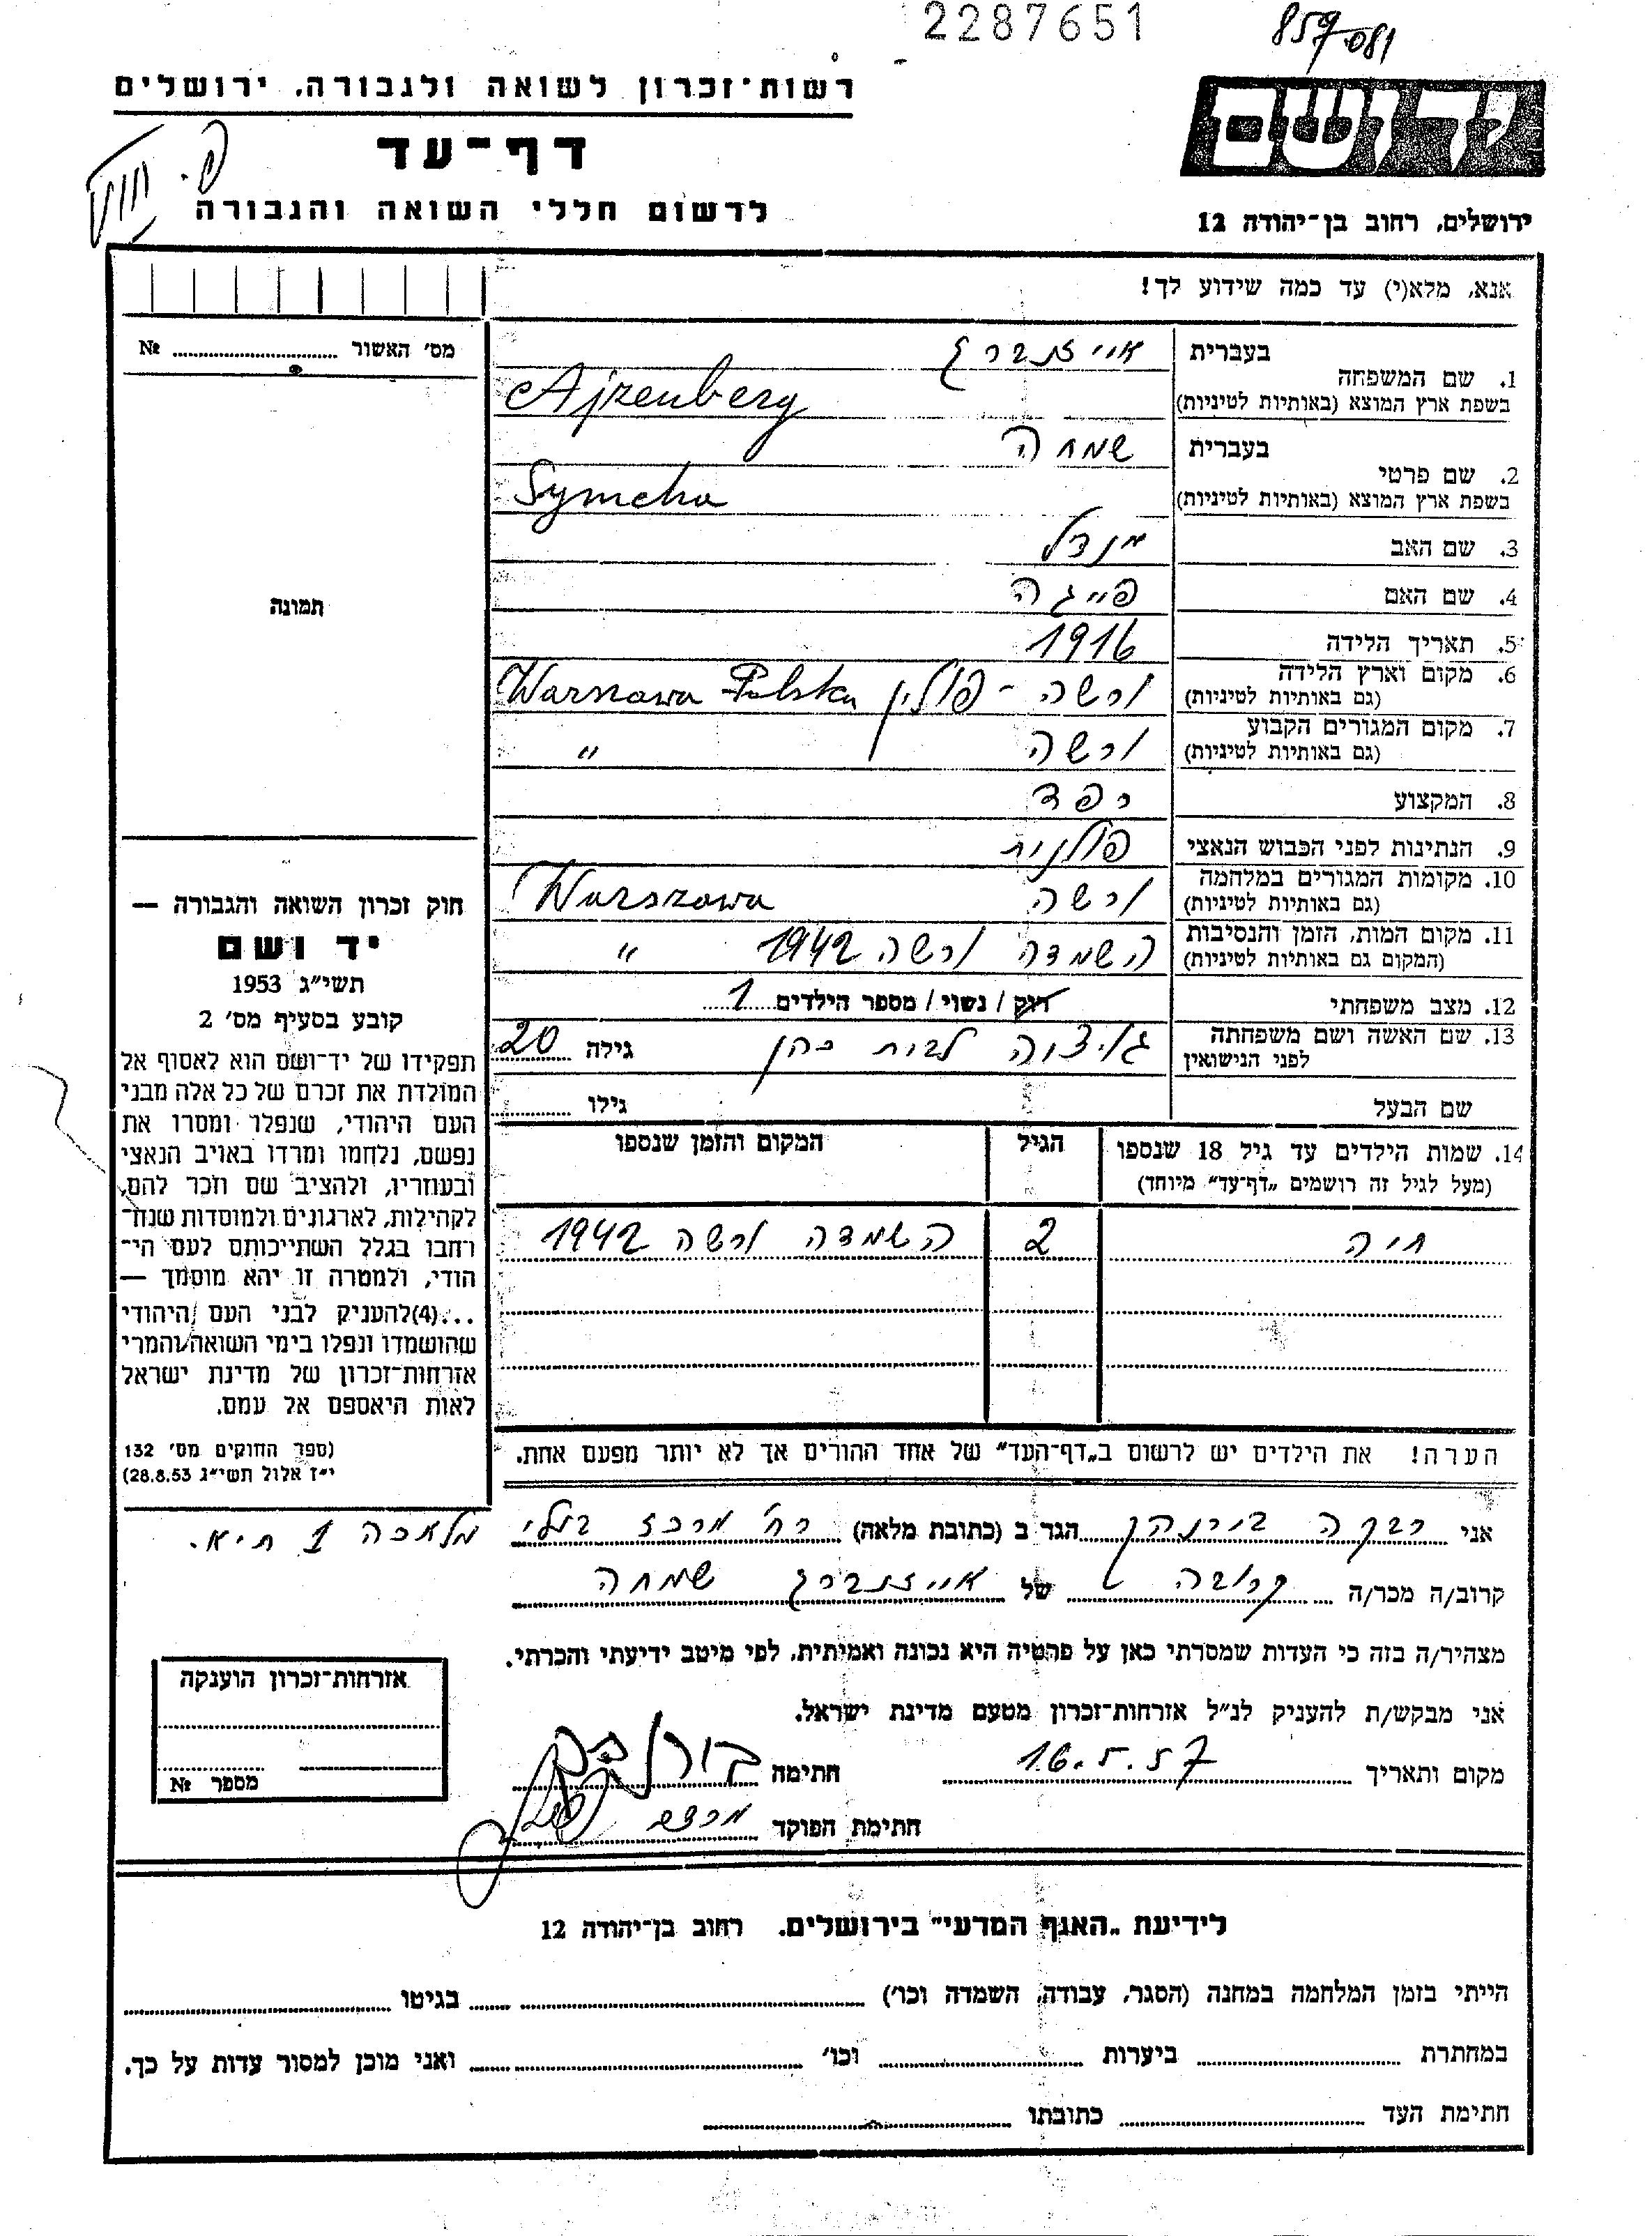 2287651
859081
רשות־זכרון לשואה ולגבורה, ירושלים
יד ושם
דף־עד
לרשום חללי השואה והגבורה
ירושלים, רחוב בן־יהודה 12
אנא, מלא(י) עד כמה שידוע לך!
מס׳ האשור № ........
1. שם המשפחה
בעברית אייזנברג
בשפת ארץ המוצא (באותיות לטיניות) Ajzenberg
2. שם פרטי
בעברית שמחה
בשפת ארץ המוצא (באותיות לטיניות) Symcha
3. שם האב מנדל
4. שם האם פייגה
5. תאריך הלידה 1916
6. מקום וארץ הלידה (גם באותיות לטיניות) ורשה - פולין Warszawa Polska
7. מקום המגורים הקבוע (גם באותיות לטיניות) ורשה "
8. המקצוע רפד
9. הנתינות לפני הכבוש הנאצי פולנית
10. מקומות המגורים במלחמה (גם באותיות לטיניות) ורשה Warszawa
11. מקום המות, הזמן והנסיבות (המקום גם באותיות לטיניות) השמדה ורשה 1942 "
12. מצב משפחתי רוק / נשוי / מספר הילדים 1
13. שם האשה ושם משפחתה לפני הנישואין לבית כהן גילה 20
שם הבעל גילו ........
14. שמות הילדים עד גיל 18 שנספו
(מעל לגיל זה רושמים „דף־עד" מיוחד)
הגיל
המקום והזמן שנספו
חיה 2 השמדה ורשה 1942
תמונה
חוק זכרון השואה והגבורה —
יד ושם
תשי"ג 1953
קובע בסעיף מס׳ 2
תפקידו של יד־ושם הוא לאסוף אל
המולדת את זכרם של כל אלה מבני
העם היהודי, שנפלו ומסרו את
נפשם, נלחמו ומרדו באויב הנאצי
ובעוזריו, ולהציב שם וזכר להם,
לקהילות, לארגונים ולמוסדות שנח־
רבו בגלל השתייכותם לעם הי־
הודי, ולמטרה זו יהא מוסמך —
...(4) להעניק לבני העם היהודי
שהושמדו ונפלו בימי השואה והמרי
אזרחות־זכרון של מדינת ישראל
לאות היאספם אל עמם.
(ספר החוקים מס׳ 132
י"ז אלול תשי"ג 28.8.53)
הערה! את הילדים יש לרשום ב„דף־העד" של אחד ההורים אך לא יותר מפעם אחת.
אני רבקה הגר ב (כתובת מלאה) רח׳ מרכז בעלי מלאכה 1 ת.א.
קרוב/ה מכר/ה קרובה של אייזנברג שמחה
מצהיר/ה בזה כי העדות שמסרתי כאן על פרטיה היא נכונה ואמיתית, לפי מיטב ידיעתי והכרתי.
אני מבקש/ת להעניק לנ"ל אזרחות־זכרון מטעם מדינת ישראל.
מקום ותאריך 16.5.57 חתימה
חתימת הפוקד
אזרחות־זכרון הוענקה
מספר №
לידיעת „האגף המדעי" בירושלים, רחוב בן־יהודה 12
הייתי בזמן המלחמה במחנה (הסגר, עבודה, השמדה וכו׳) ........ בגיטו ........
במחתרת ........ ביערות ........ וכו׳ ........ ואני מוכן למסור עדות על כך.
חתימת העד ........ כתובתו ........